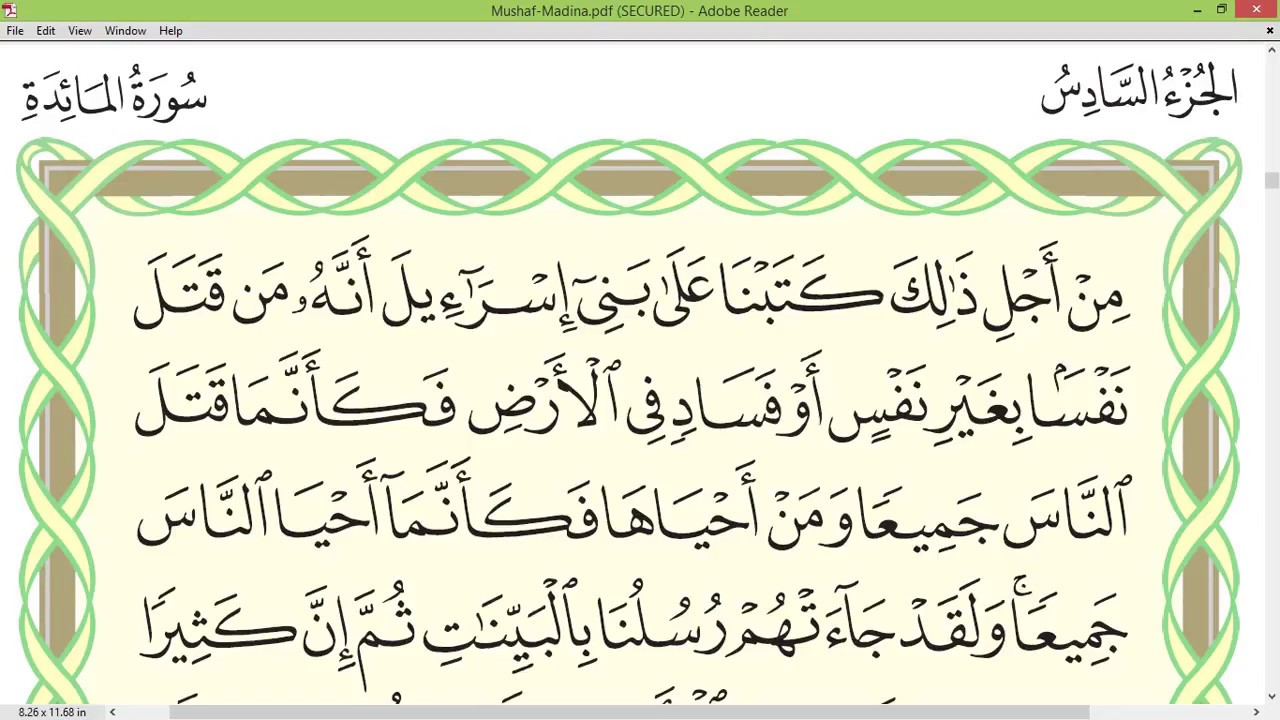 Mushaf-Madina.pdf (SECURED) - Adobe Reader
File Edit View Window Help
الجُزْءُ السَّادِسُ
سُورَةُ المَائِدَةِ
مِنْ أَجْلِ ذَٰلِكَ كَتَبْنَا عَلَىٰ بَنِىٓ إِسْرَٰٓءِيلَ أَنَّهُۥ مَن قَتَلَ
نَفْسَۢا بِغَيْرِ نَفْسٍ أَوْ فَسَادٍ فِى ٱلْأَرْضِ فَكَأَنَّمَا قَتَلَ
ٱلنَّاسَ جَمِيعًا وَمَنْ أَحْيَاهَا فَكَأَنَّمَآ أَحْيَا ٱلنَّاسَ
جَمِيعًا ۚ وَلَقَدْ جَآءَتْهُمْ رُسُلُنَا بِٱلْبَيِّنَٰتِ ثُمَّ إِنَّ كَثِيرًا
8.26 x 11.68 in